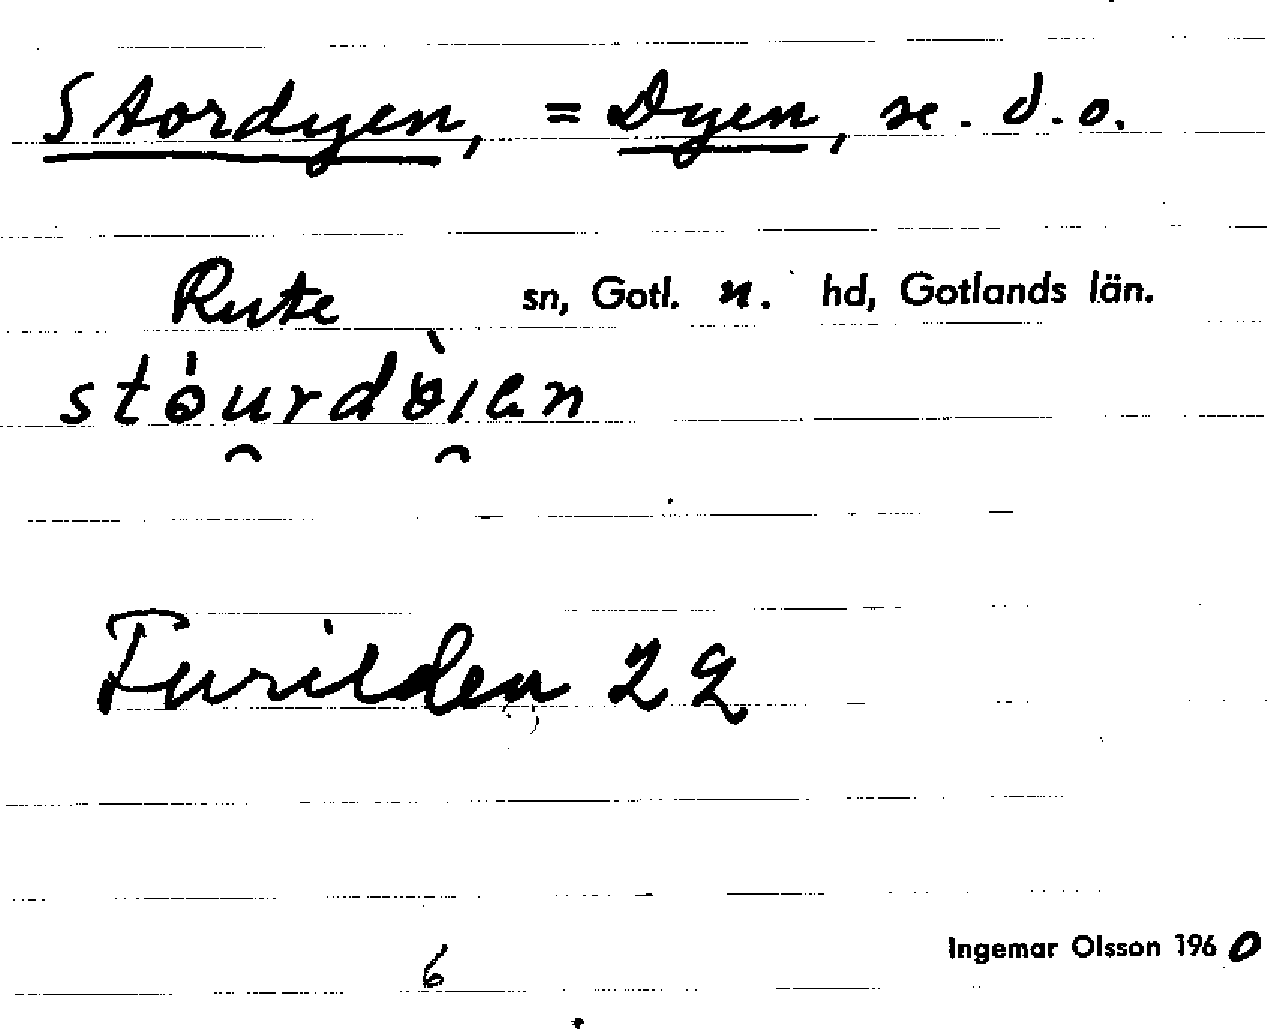 Stordyen, = Dyen, se. d.o.
Rute sn, Gotl. n. hd, Gotlands län.
stóu̯rdòi̯en
Furilden 22
Ingemar Olsson 1960
6